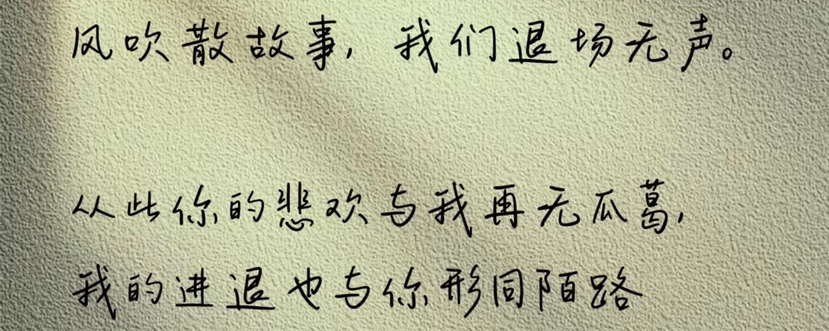 风吹散故事，我们退场无声。
从此你的悲欢与我再无瓜葛，
我的进退也与你形同陌路